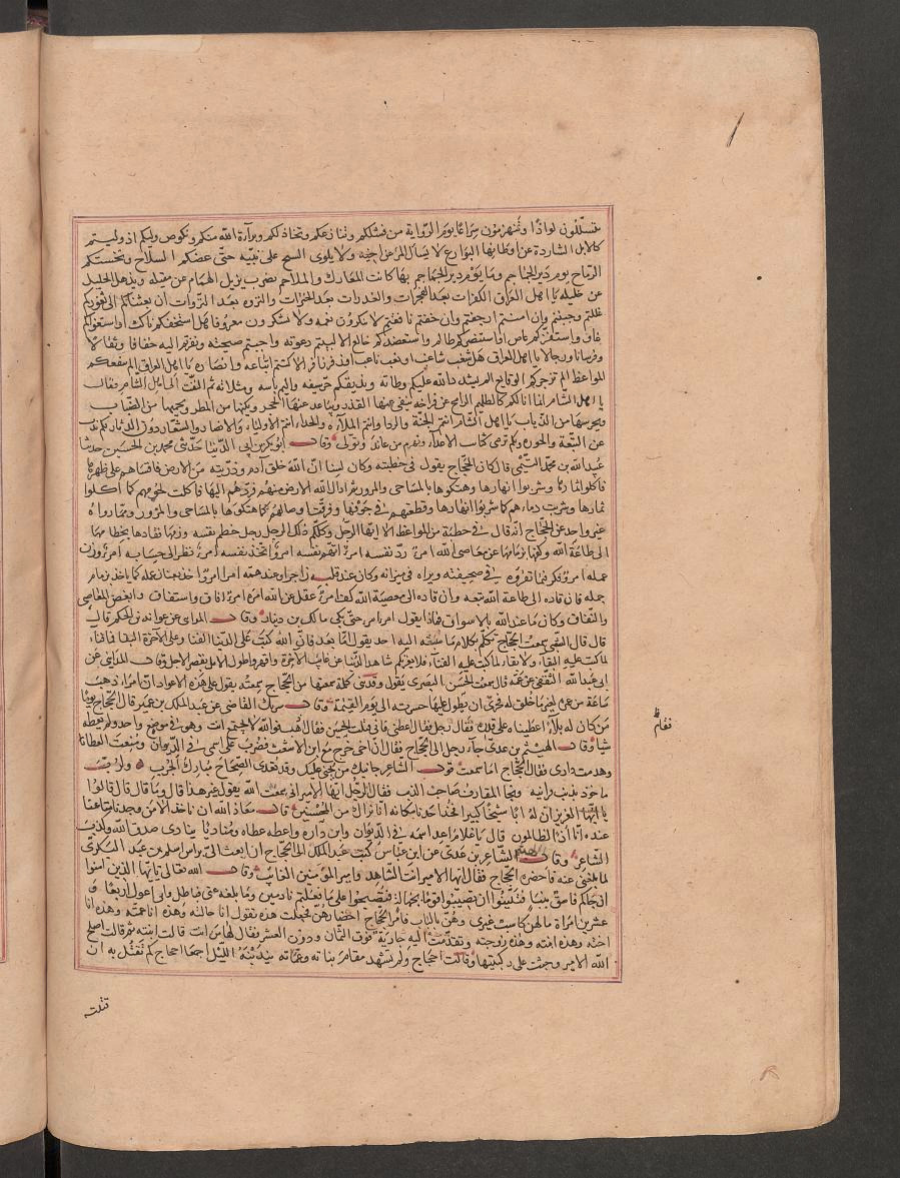 تتسللون لواذا وتنهزمون سراعا يوم الزواية من فشلكم وتنازعكم وتخاذلكم وبرآءة الله منكم ونكوص وليكم اذ وليتم
كالابل الشاردة عن اوطانها النوازع لا يسأل المرء عن اخيه ولا يلوى الشيخ على بنيه حتى عضكم السلاح ونخستكم
الرماح يوم دير الجماجم وما يوم دير الجماجم بها كانت المعارك والملاحم بضرب يزيل الهام عن مقيله ويذهل الخليل
عن خليله يا اهل العراق الكفرات بعد الفجرات والغدرات بعد الخترات والنزوة بعد النزوات ان بعثناكم الى ثغوركم
غللتم وجبنتم وان امنتم ارجفتم وان خفتم نافقتم لا تذكرون نعمة ولا تشكرون معروفا هل استخفكم ناكث او استغواكم
غاو او استفزكم عاص او استنصركم ظالم او استعضدكم خالع الا لبيتم دعوته واجبتم صيحته ونفرتم اليه خفافا وثقالا
وفرسانا ورجالا يا اهل العراق هل شغب شاغب او نعب ناعب او زفر زافر الا كنتم اتباعه وانصاره يا اهل العراق الم تنفعكم
المواعظ الم تزجركم الوقايع الم يشدد الله عليكم وطأته ويذيقكم حر سيفه واليم بأسه ومثلاته ثم التفت الى اهل الشام فقال
يا اهل الشام انما انا لكم كالظليم الرامح عن فراخه ينفى عنها القذر ويباعد عنها الحجر ويكنها من المطر ويحميها من الضباب
ويحرسها من الذياب يا اهل الشام انتم الجنة والردا وانتم الملاءة والحذاء انتم الاولياء والانصار
عن البيعة والحوزة وبكم ترمى كتائب الاعداء ويهزم من عاند وتولى وقال ابو بكر بن ابى الدنيا حدثنى محمد بن الحسين حدثنا
عبيد الله بن محمد التيمى قال كان الحجاج يقول فى خطبته وكان لسنا ان الله خلق آدم وذريته من الارض فامشاهم على ظهرها
فاكلوا ثمارها وشربوا انهارها وهتكوها بالمساحى والمرور ثم ادال الله الارض منهم فردهم اليها فاكلت لحومهم كما اكلوا
ثمارها وشربت دماءهم كما شربوا انهارها وقطعتهم فى جوفها وفرقت اوصالهم كما هتكوها بالمساحى والمرور ومما رواه
غير واحد عن الحجاج انه قال فى خطبته من المواعظ الا ايها الرجل وكلكم ذلك الرجل رجل خطم نفسه وزمها فقادها بخطامها
الى طاعة الله وكفها بزمامها عن معاصى الله امرؤ رد نفسه امرؤ اتهم نفسه امرؤ اتخذ نفسه امرؤ نظر الى حسابه امرؤ وزن
عمله امرؤ فكر فيما تقرؤه فى صحيفته ويراه فى ميزانه وكان عند قلبه زاجرا وعند همه امرا امرؤ اخذ بعنان عمله كما ياخذ بزمام
جمله فان قاده الى طاعة الله تبعه وان قاده الى معصية الله كف امرؤ عقل عن الله امره امرؤ افاق واستفاق وابغض المعاصى
والنفاق وكان بما عند الله بالاشواق فما زال يقول امرؤ امرؤ حتى بكى مالك بن دينار وقال المدائنى عن عوانة بن الحكم قال
قال قال الشعبى سمعت الحجاج تكلم بكلام ما سبقه اليه احد يقول اما بعد فان الله كتب على الدنيا الفنا وعلى الآخرة البقا فلا فناء
لما كتب عليه البقاء ولا بقاء لما كتب عليه الفناء فلا يغرنكم شاهد الدنيا عن غائب الآخرة واقهروا طول الامل بقصر الاجل وقال المدائنى عن
ابى عبد الله الثقفى عن عمه قال سمعت الحسن البصرى يقول وقذتنى كلمة سمعتها من الحجاج سمعته يقول على هذه الاعواد ان امرا، ذهبت
ساعة من عمره لغير ما خلق له لحرى ان يطول عليها حسرته الى يوم القيمة وقال شريك القاضى عن عبد الملك بن عمير قال الحجاج يوما
من كان له بلاء اعطيناه على قدره فقال رجل فقال اعطنى فانى قتلت الحسين فقال
شيأ وقال الهيثم بن عدى جاء رجل الى الحجاج فقال ان اخى خرج مع ابن الاشعث فضرب على اسمى فى الديوان ومنعت العطا
وهدمت دارى فقال الحجاج اما سمعت قول الشاعر جانيك من يجنى عليك وقد تعدى الصحاح مبارك الجرب ولرب
ماخوذ بذنب قرابته ونجا المقارف صاحب الذنب فقال الرجل ايها الامير انى سمعت الله يقول غير هذا قال وما قال قال قالوا
يا ايها العزيز ان له ابا شيخا كبيرا فخذ احدنا مكانه انا نراك من المحسنين قال معاذ الله ان ناخذ الا من وجدنا متاعنا
عنده انا اذا لظالمون قال يا غلام اعد اسمه فى الديوان وابن داره واعطه عطاه ومر مناديا ينادى صدق الله وكذب
الشاعر وقال الهيثم بن عدى عن ابن عباس كتب عبد الملك الى الحجاج ان ابعث الى براس اسلم بن عبد البكرى
لما بلغنى عنه فاحضره الحجاج فقال ايها الامير انت الشاهد وامير المؤمنين الغائب وقال الله تعالى يا ايها الذين آمنوا
ان جاءكم فاسق بنبإ فتبينوا ان تصيبوا قوما بجهالة فتصبحوا على ما فعلتم نادمين وما بلغه عنى فباطل وانى اعول اربعا و
عشرين امراة ما لهن كاسب غيرى وهن بالباب فامر الحجاج احضارهن فجعلت هذه تقول انا خالته وهذه انا عمته وهذه انا
اخته وهذه ابنته وهذه زوجته وتقدمت اليه جارية فوق الثمان ودون العشر فقال لها من انت قالت ابنته ثم قالت اصلح
الله الامير وجثت على ركبتيها وقالت احجاج ولم تشهد مقام بناته وعماته يندبنه الليل اجمعا احجاج كم تقتل به ان
قتلته